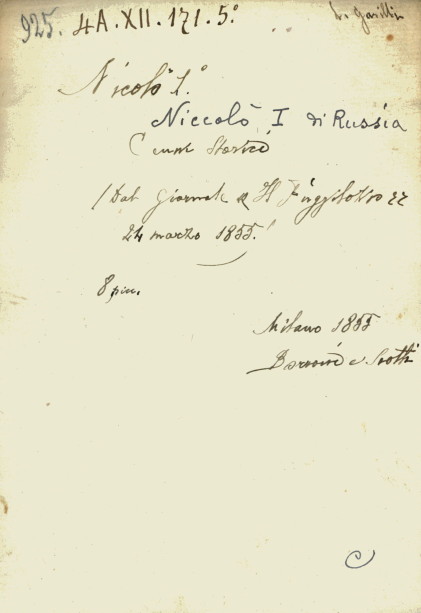 925. 4A.XII.171.5°
Nicolò 1.°
Niccolò I di Russia
Cenni Storici
(Dal Giornale Il
24 marzo 1855.)
8 picc.
Milano 1855
e Scotti